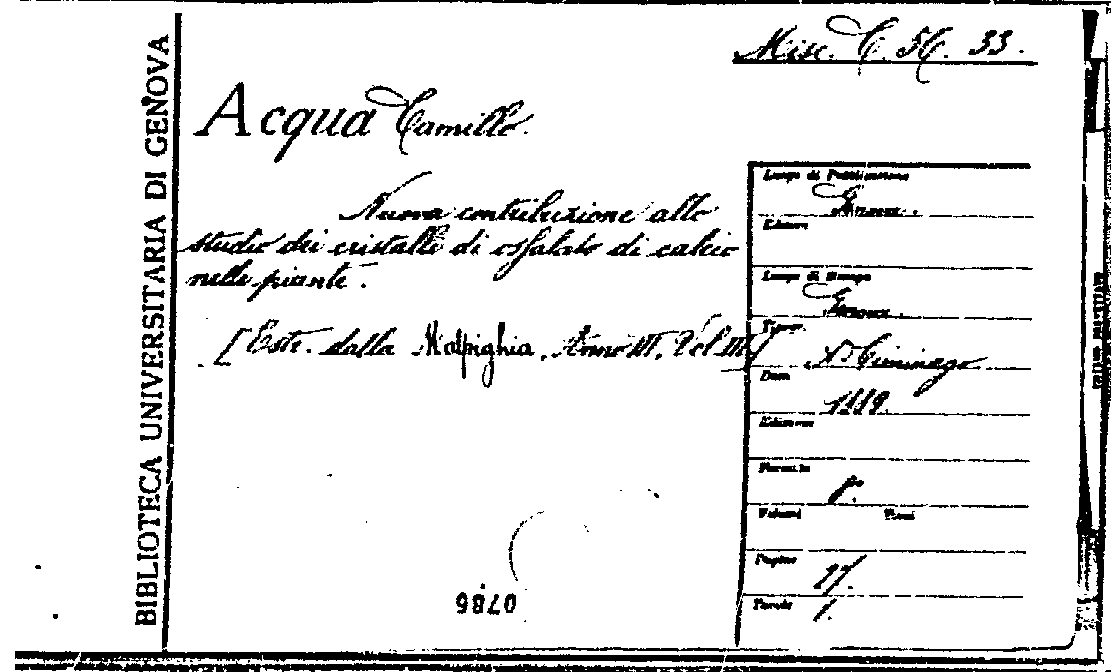 BIBLIOTECA UNIVERSITARIA DI GENOVA
Misc. C. 56. 33.
Acqua Camillo.
Nuova contribuzione allo
studio dei cristalli di ossalato di calcio
nelle piante.
[Estr. dalla Malpighia, Anno III, Vol III]
Luogo di Pubblicazione
Genova.
Editore
Luogo di Stampa
Genova.
Tipogr.
Ciminago
Data
1889.
Edizione
Formato
8º
Volumi Tomi
Pagine
17.
Tavole
1.
0786